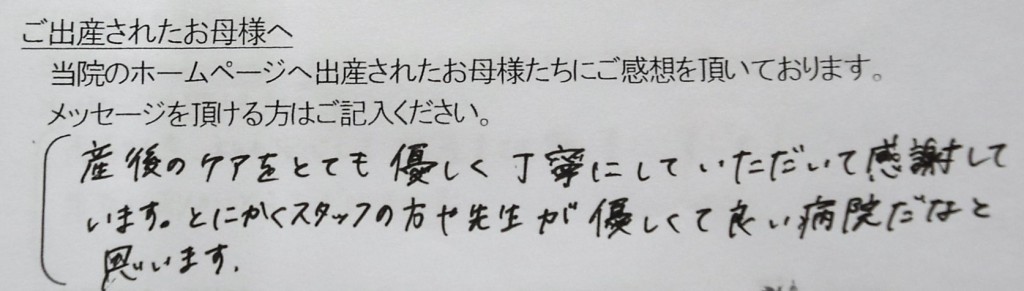 ご出産されたお母様へ
当院のホームページへ出産されたお母様たちにご感想を頂いております。
メッセージを頂ける方はご記入ください。
産後のケアをとても優しく丁寧にしていただいて感謝して
います。とにかくスタッフの方や先生が優しくて良い病院だなと
思います.